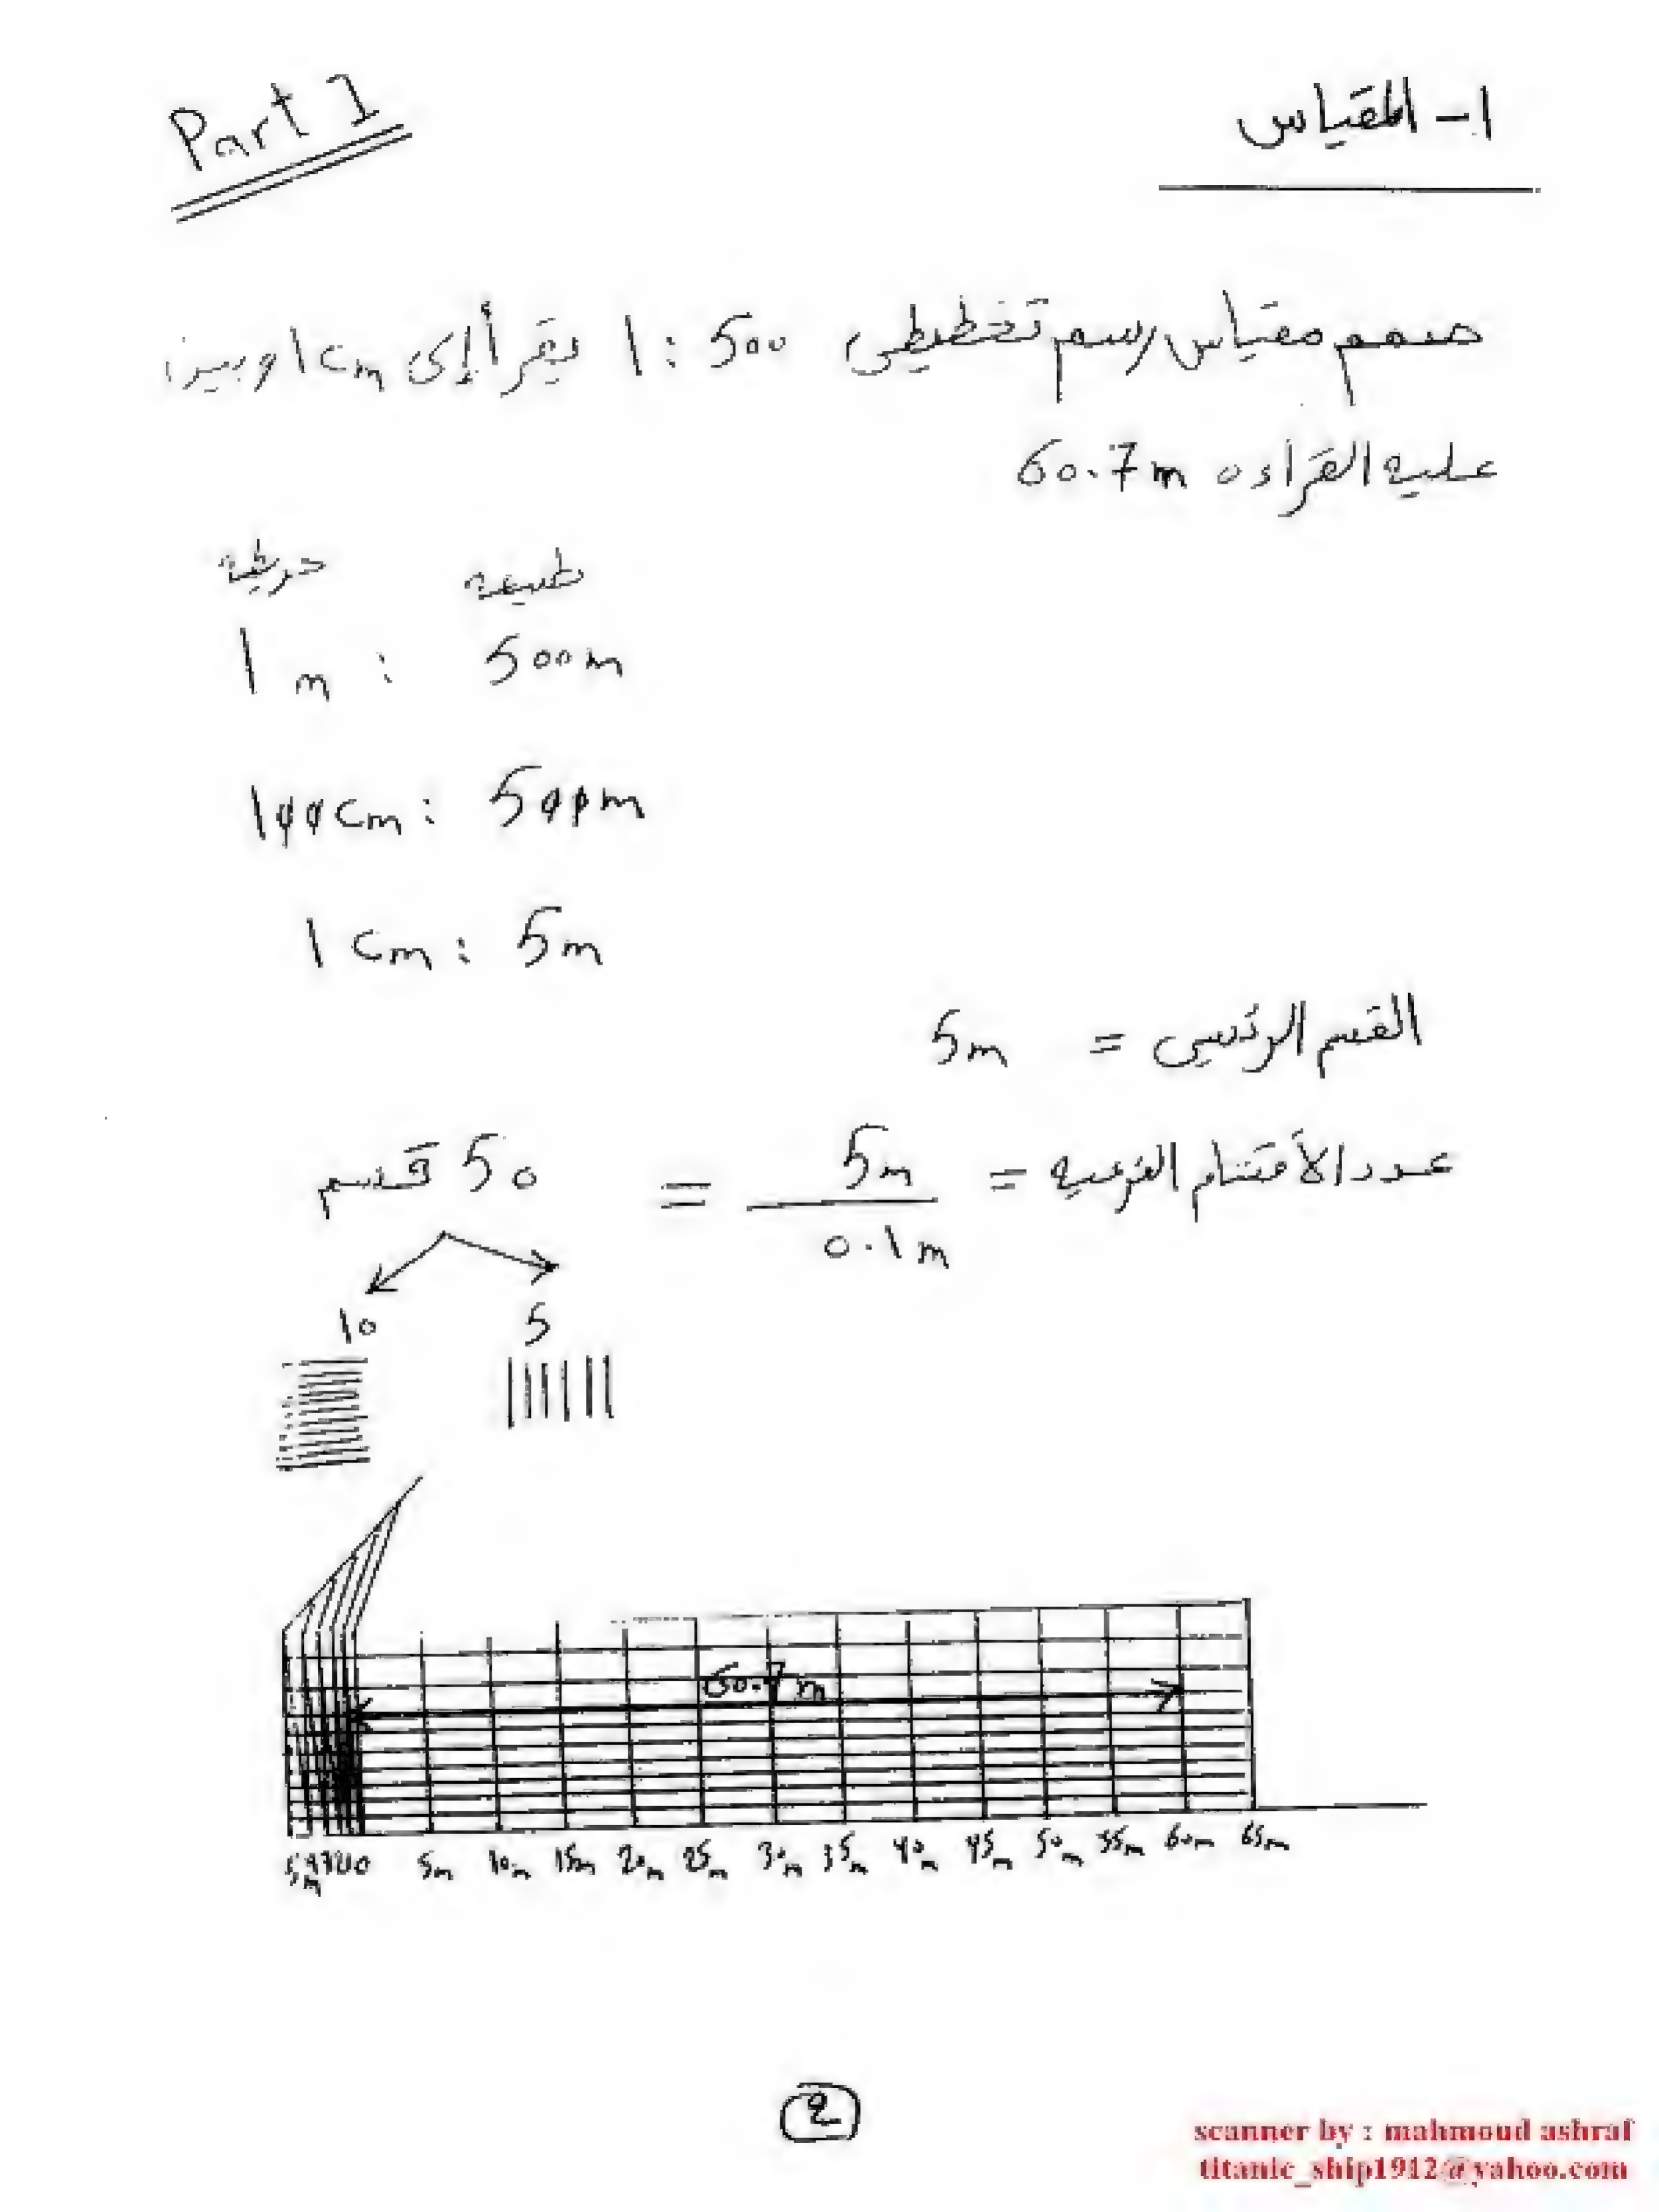 Part 1
١- المقياس
صمم مقياس رسم تخطيطى 500 : 1 يقرأ إلى 1cm و بين
عليه القراءه 60.7m
خريطة طبيعه
1 m : 500m
100 cm : 500m
1 cm : 5m
القسم الرئيسى = 5m
عدد الأقسام الفرعيه = 5m / 0.1m = 50 قسم
10 5
60.7m
5m 0 5m 10m 15m 20m 25m 30m 35m 40m 45m 50m 55m 60m 65m
2
scanner by : mahmoud ashraf
titanic_ship1912@yahoo.com